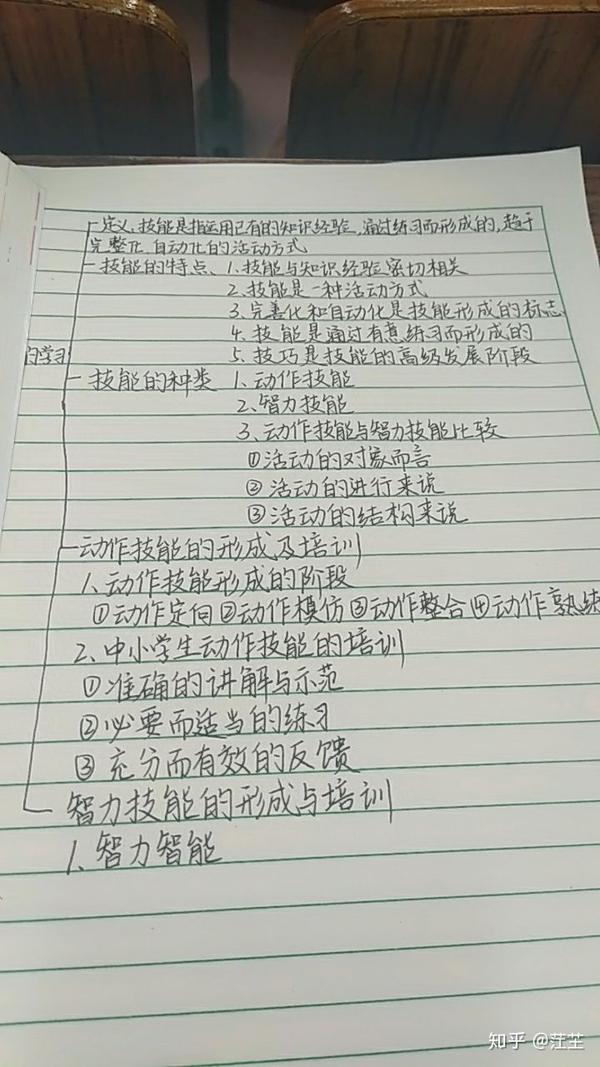 定义、技能是指运用已有的知识经验,通过练习而形成的,趋于
完整化、自动化的活动方式
技能的特点、1.技能与知识经验密切相关
2.技能是一种活动方式
3.完善化和自动化是技能形成的标志
4.技能是通过有意练习而形成的
的学习
5.技巧是技能的高级发展阶段
技能的种类 1.动作技能
2.智力技能
3.动作技能与智力技能比较
①活动的对象而言
②活动的进行来说
③活动的结构来说
动作技能的形成及培训
1.动作技能形成的阶段
①动作定向②动作模仿③动作整合④动作熟练
2.中小学生动作技能的培训
①准确的讲解与示范
②必要而适当的练习
③充分而有效的反馈
智力技能的形成与培训
1.智力智能
知乎 @茳芏